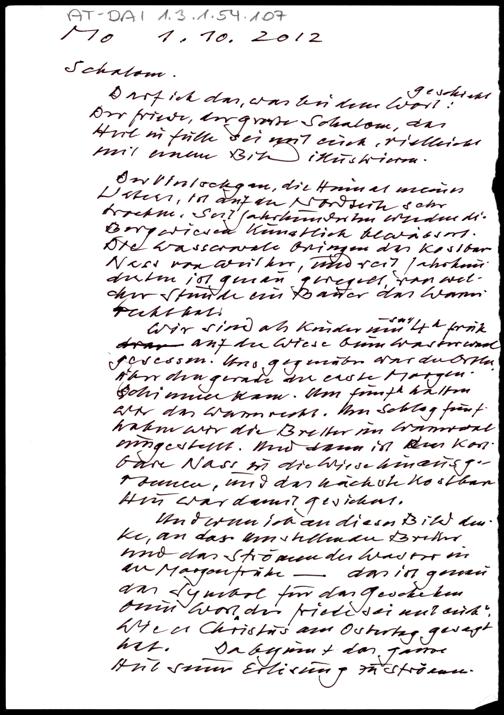 AT-DAI 1.3.1.54.107
Mo 1.10.2012
Schalom.
geschieht
Darf ich das, was bei dem Wort:
Der Friede, der große Schalom, das
Heil in Fülle sei mit euch, vielleicht
mit einem Bild illustrieren.
Der Vinschgau, die Heimat meines
Vaters, ist auf der Nordseite sehr
trocken. Seit Jahrhunderten werden die
Bergwiesen künstlich bewässert.
Die Wasserwaale bringen das kostbare
Nass von weither, und seit Jahrhun
derten ist genau geregelt, von wel-
cher Stunde ein Bauer das Wasser
recht hat.
Wir sind als Kinder um 4h früh
auf die Wiese beim Wasserwaal
gesessen. Uns gegenüber war der Ortler,
über den gerade der erste Morgen-
schimmer kam. Um fünf hatten
wir das Wasserrecht. Um Schlag fünf
haben wir die Bretter im Wasserwaal
umgestellt. Und dann ist das kost
bare Nass in die Wiese hinausge-
ronnen, und das nächste kostbare
Heu war damit gesichert.
Und wenn ich an dieses Bild den-
ke, an das Umstellen der Bretter
und das Strömen des Wassers in
der Morgenfrühe — das ist genau
das Symbol für das Geschehen
beim Wort "der Friede sei mit euch",
wie es Christus am Ostertag gesagt
hat. Da beginnt das ganze
Heil seiner Erlösung zu strömen.